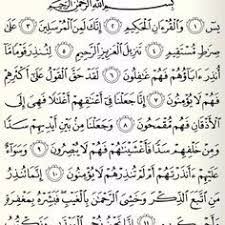 بِسْمِ ٱللَّهِ ٱلرَّحْمَٰنِ ٱلرَّحِيمِ
يسٓ ۝١ وَٱلْقُرْءَانِ ٱلْحَكِيمِ ۝٢ إِنَّكَ لَمِنَ ٱلْمُرْسَلِينَ ۝٣ عَلَىٰ
صِرَٰطٍ مُّسْتَقِيمٍ ۝٤ تَنزِيلَ ٱلْعَزِيزِ ٱلرَّحِيمِ ۝٥ لِتُنذِرَ قَوْمًا مَّآ
أُنذِرَ ءَابَآؤُهُمْ فَهُمْ غَٰفِلُونَ ۝٦ لَقَدْ حَقَّ ٱلْقَوْلُ عَلَىٰٓ أَكْثَرِهِمْ
فَهُمْ لَا يُؤْمِنُونَ ۝٧ إِنَّا جَعَلْنَا فِىٓ أَعْنَٰقِهِمْ أَغْلَٰلًا فَهِىَ إِلَى
ٱلْأَذْقَانِ فَهُم مُّقْمَحُونَ ۝٨ وَجَعَلْنَا مِنۢ بَيْنِ أَيْدِيهِمْ سَدًّا
وَمِنْ خَلْفِهِمْ سَدًّا فَأَغْشَيْنَٰهُمْ فَهُمْ لَا يُبْصِرُونَ ۝٩ وَسَوَآءٌ
عَلَيْهِمْ ءَأَنذَرْتَهُمْ أَمْ لَمْ تُنذِرْهُمْ لَا يُؤْمِنُونَ ۝١٠ إِنَّمَا تُنذِرُ
مَنِ ٱتَّبَعَ ٱلذِّكْرَ وَخَشِىَ ٱلرَّحْمَٰنَ بِٱلْغَيْبِ فَبَشِّرْهُ بِمَغْفِرَةٍ